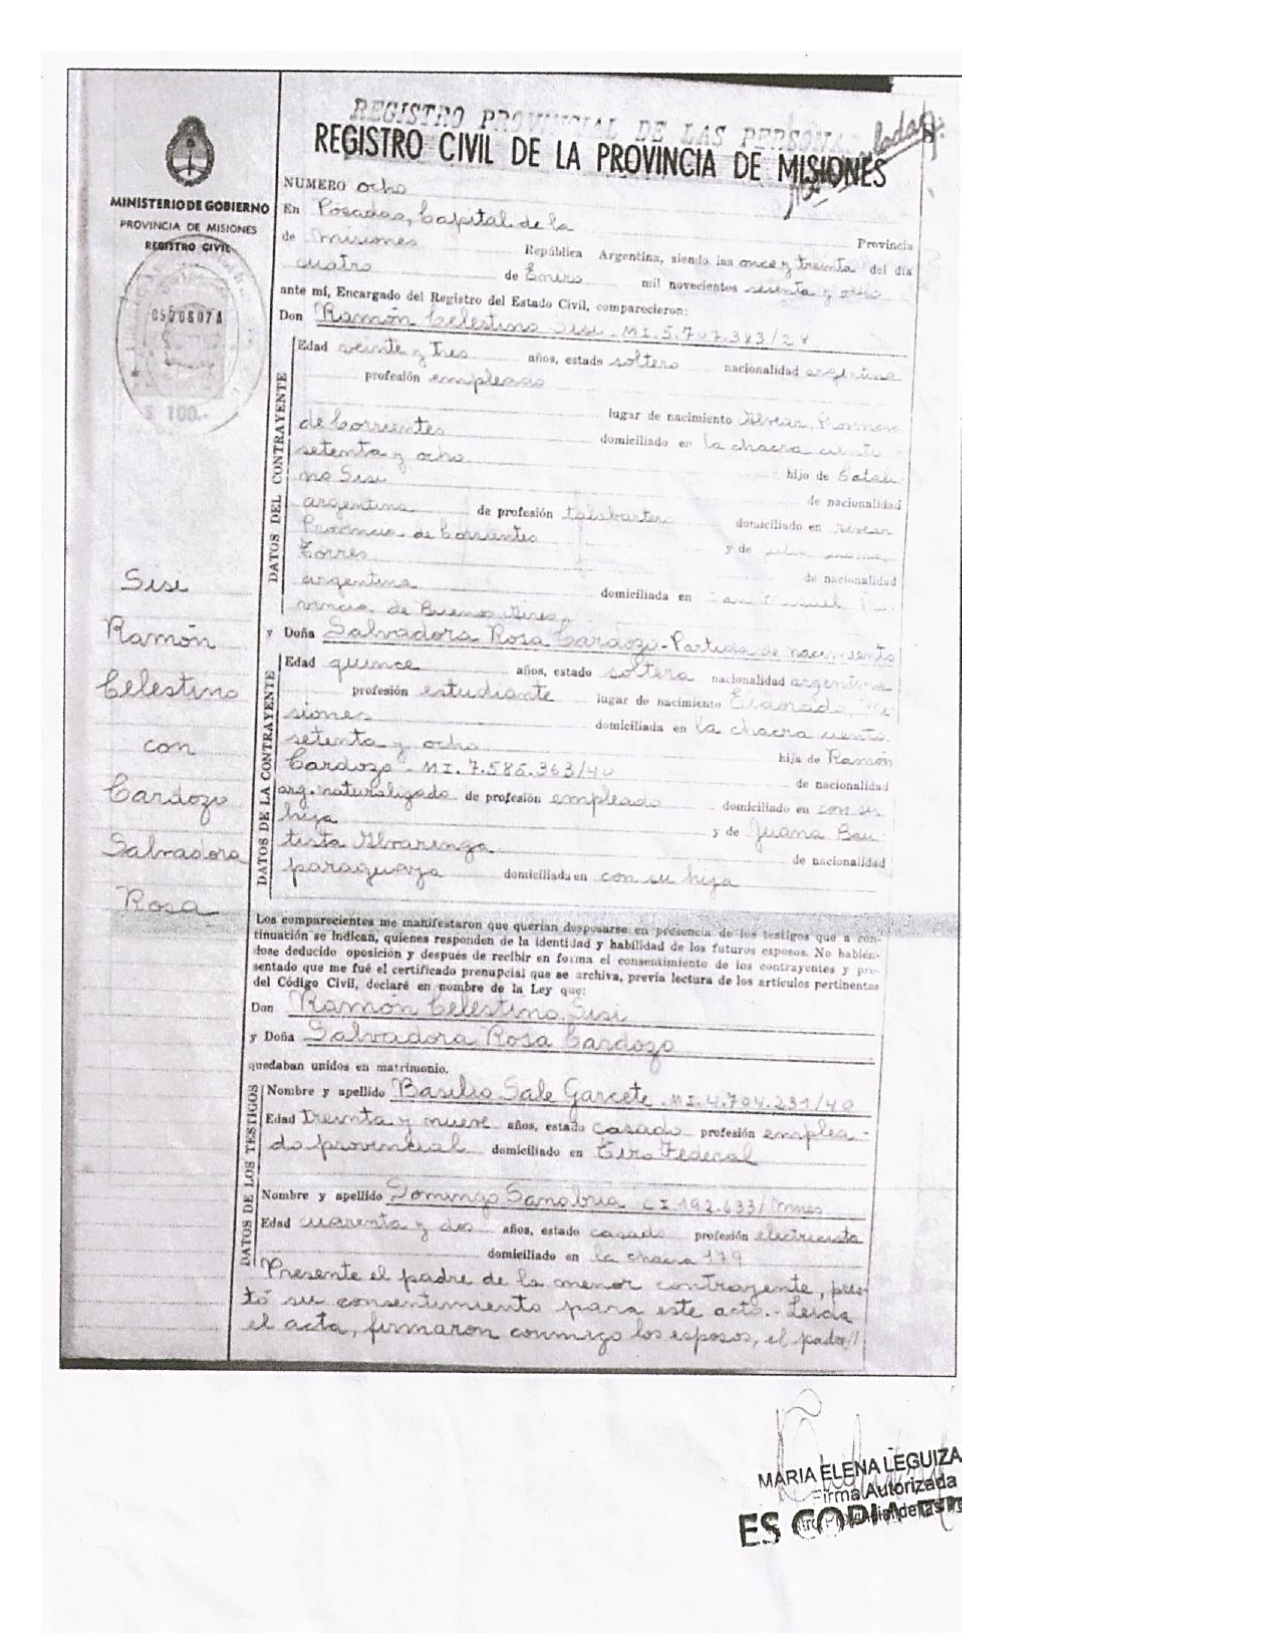 REGISTRO PROVINCIAL DE LAS PERSONA
REGISTRO CIVIL DE LA PROVINCIA DE MISIONES
MINISTERIO DE GOBIERNO
PROVINCIA DE MISIONES
REGISTRO CIVIL
0526807A
$ 100.-
Sisi
Ramón
Celestino
con
Cardozo
Salvadora
Rosa
NUMERO ocho
En Posadas, Capital de la Provincia
de Misiones República Argentina, siendo las once y treinta del día
cuatro de Enero mil novecientos sesenta y ocho
ante mí, Encargado del Registro del Estado Civil, comparecieron:
Don Ramón Celestino Sisi - MI.5.707.383/
DATOS DEL CONTRAYENTE
Edad veinte y tres años, estado soltero nacionalidad argentina
profesión empleado
lugar de nacimiento Alvear, Provincia
de Corrientes domiciliado en la chacra ciento
setenta y ocho hijo de Catali
no Sisi de nacionalidad
argentina de profesión talabartero domiciliado en Alvear
Provincia de Corrientes y de
Torres de nacionalidad
argentina domiciliada en San Miguel Pro
vincia de Buenos Aires,
y Doña Salvadora Rosa Cardozo - Partida de nacimiento
DATOS DE LA CONTRAYENTE
Edad quince años, estado soltera nacionalidad argentina
profesión estudiante lugar de nacimiento Eldorado, Mi
siones domiciliada en la chacra ciento
setenta y ocho hija de Ramón
Cardozo - MI.7.586.363/40 de nacionalidad
arg. naturalizado de profesión empleado domiciliado en con su
hija y de Juana Bau
tista Alvarenga de nacionalidad
paraguaya domiciliada en con su hija
Los comparecientes me manifestaron que querían desposarse en presencia de los testigos que a con-
tinuación se indican, quienes responden de la identidad y habilidad de los futuros esposos. No habién-
dose deducido oposición y después de recibir en forma el consentimiento de los contrayentes y pre-
sentado que me fué el certificado prenupcial que se archiva, previa lectura de los artículos pertinentes
del Código Civil, declaré en nombre de la Ley que:
Don Ramón Celestino Sisi
y Doña Salvadora Rosa Cardozo
quedaban unidos en matrimonio.
DATOS DE LOS TESTIGOS
Nombre y apellido Basilio Sale Garcete - MI.4.704.231/40
Edad treinta y nueve años, estado casado profesión emplea-
do provincial domiciliado en Tiro Federal
Nombre y apellido Domingo Sanabria CI 192.633/Mnes
Edad cuarenta y dos años, estado casado profesión electricista
domiciliado en la chacra 179
Presente el padre de la menor contrayente, pres-
tó su consentimiento para este acto.- Leida
el acta, firmaron conmigo los esposos, el padre//
MARIA ELENA LEGUIZA
Firma Autorizada
ES COPIA